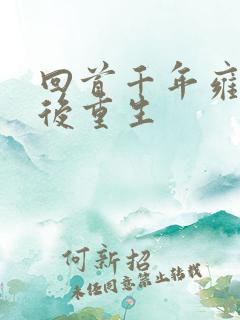 回首千年雍
後重生
何新招
未经同意禁止转载